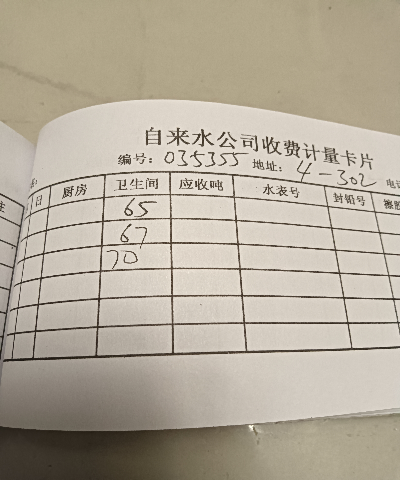 自来水公司收费计量卡片
编号：035355 地址：4-302
日 厨房 卫生间 应收吨 水表号 封铅号
65
67
70